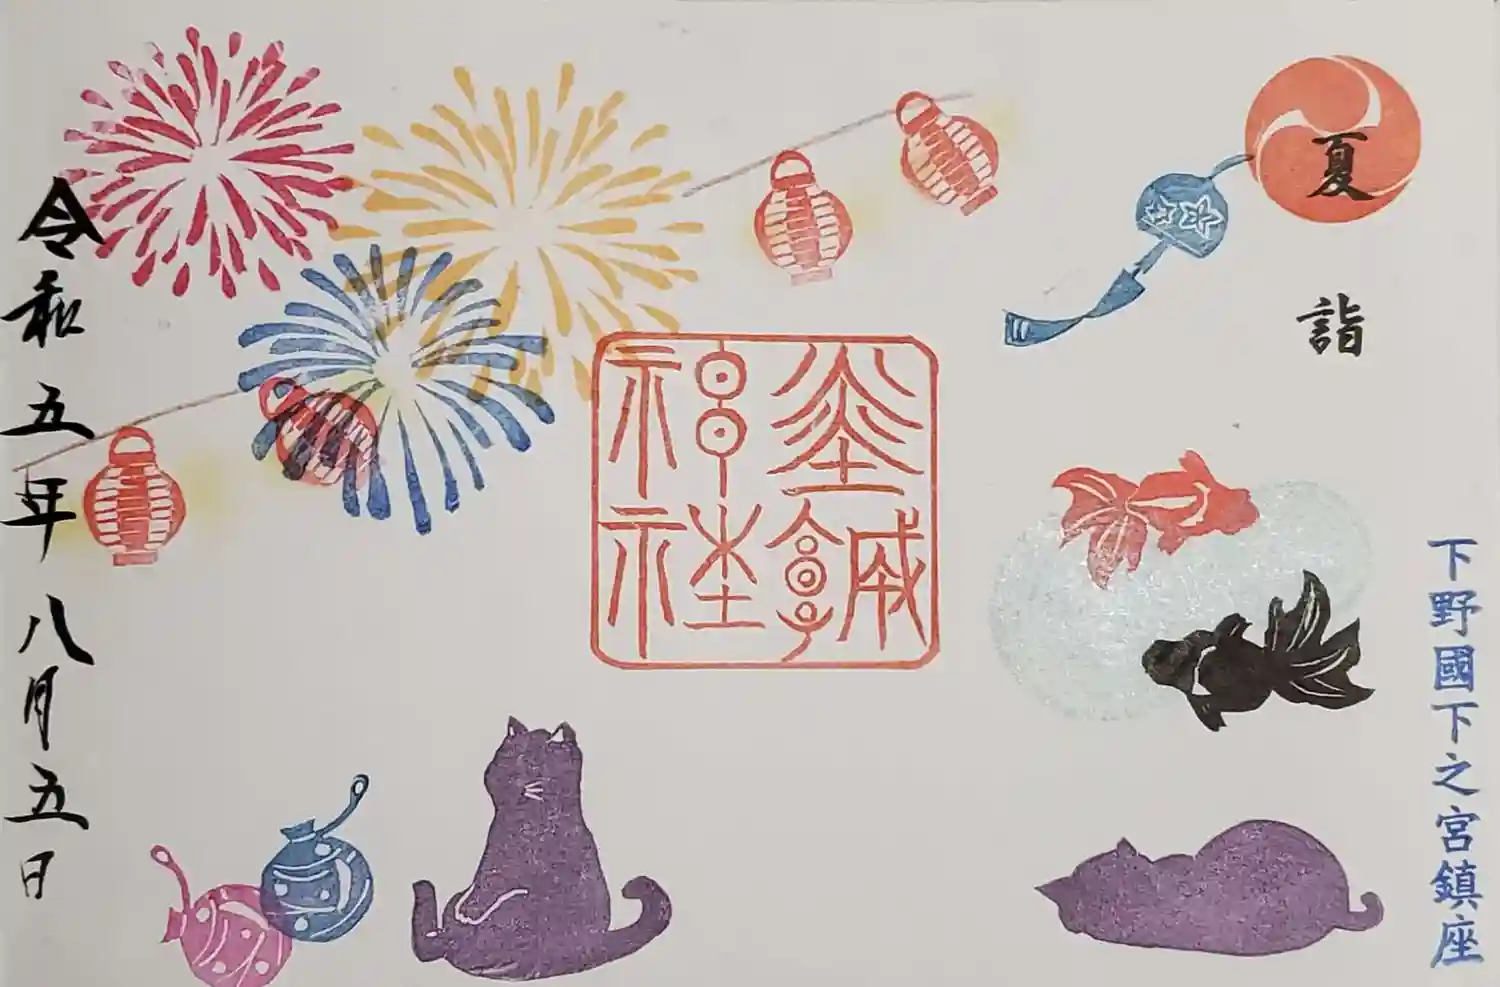 夏詣
下野國下之宮鎮座
神社
令和五年八月五日